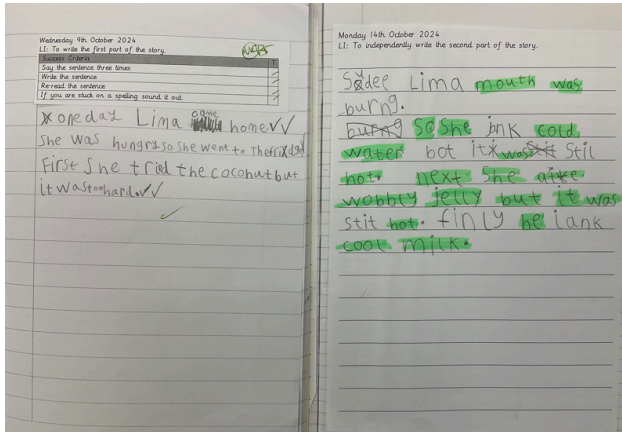 Wednesday 9th October 2024
LI: To write the first part of the story.
Success Criteria
T
Say the sentence three times
Write the sentence
Re-read the sentence
If you are stuck on a spelling sound it out.
one day Lima came home
She was hungry so she went to The
First She tried the coconut but
it was too hard.
Monday 14th October 2024
LI: To independently write the second part of the story.
Lima mouth was
burng.
burng So She ink cold
water bot it was Stil
hot. next She
wobbly jelly but it was
stit hot. finly he iank
cool milk.